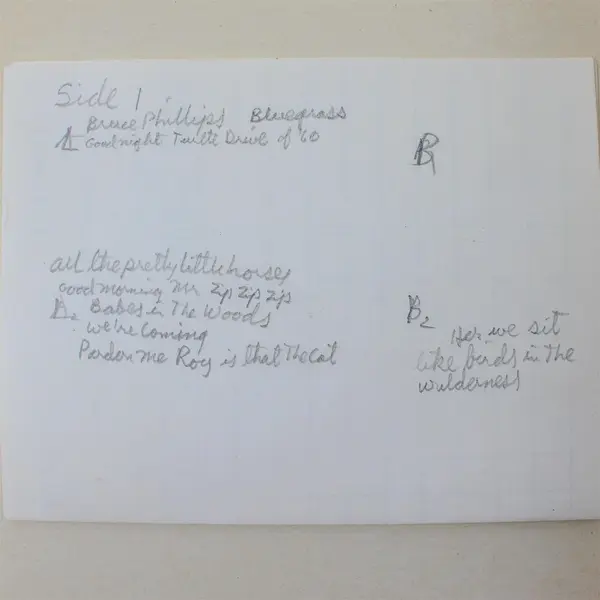 Side 1
Bruce Phillips Bluegrass
A Goodnight Turtle Drive of '60
B
all the pretty little horses
good morning Mr Zip Zip Zip
B2 Babes in The Woods
we're Coming
Pardon me Roy is that The Cat
B2
Her we sit
like birds in The
wilderness